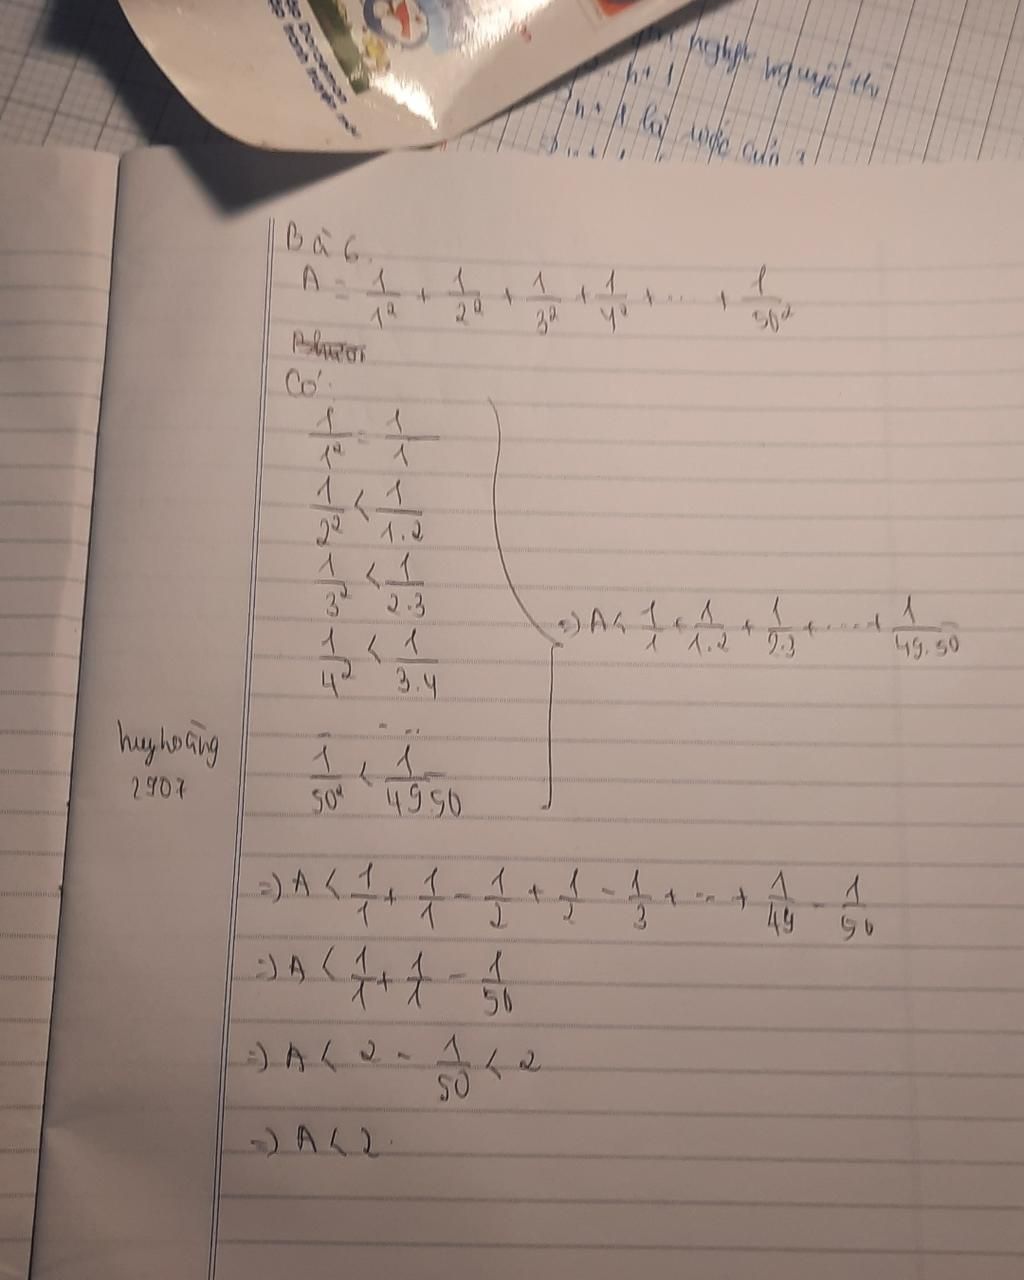 nghịc nguyễn thị
n+1
n+1 là ước của
Bà 6.
A = 1/1² + 1/2² + 1/3² + 1/4² + ... + 1/50²
Có:
1/1² = 1/1
1/2² < 1/1.2
1/3² < 1/2.3
1/4² < 1/3.4
... ...
1/50² < 1/49.50
=) A < 1/1 + 1/1.2 + 1/2.3 + .... + 1/49.50
huyhoàng
2907
=) A < 1/1 + 1/1 - 1/2 + 1/2 - 1/3 + ... + 1/49 - 1/50
=) A < 1/1 + 1/1 - 1/50
=) A < 2 - 1/50 < 2
=) A < 2.